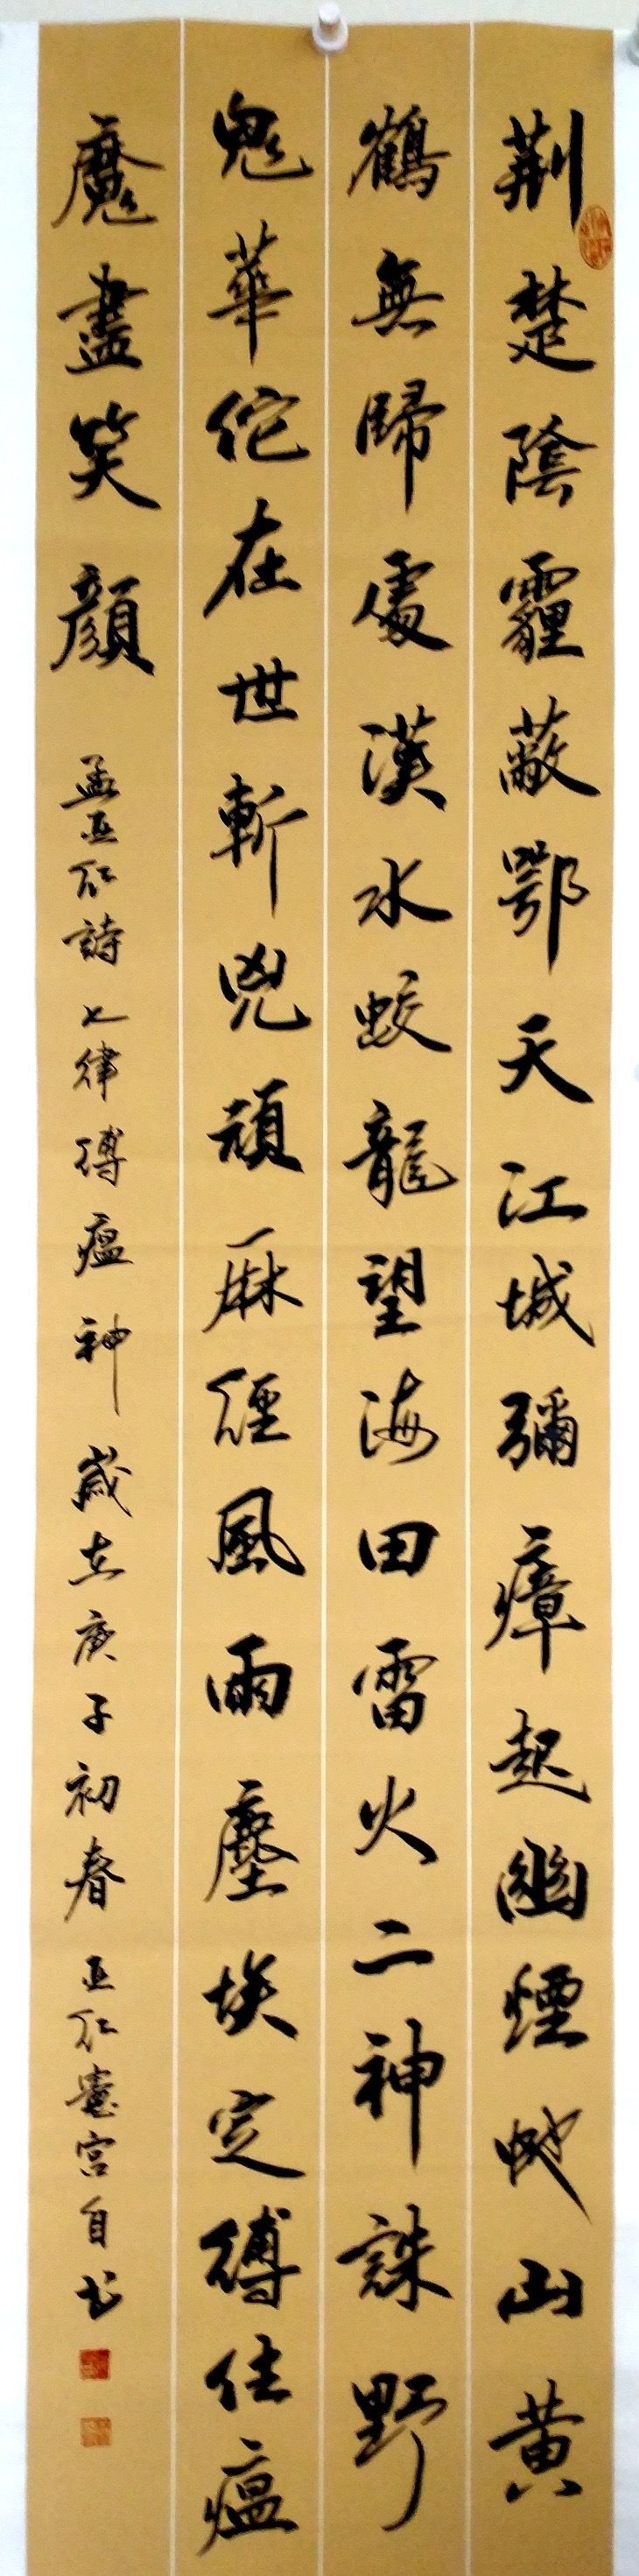 荆楚陰霾蔽鄂天江城彌瘴起幽煙虵山黄
鶴無歸處漢水蛟龍望海田雷火二神誅野
鬼華佗在世斬兇頑麻經風雨塵埃定縛住瘟
魔盡笑顏
孟亞仁詩七律縛瘟神歲在庚子初春亞仁宮自书